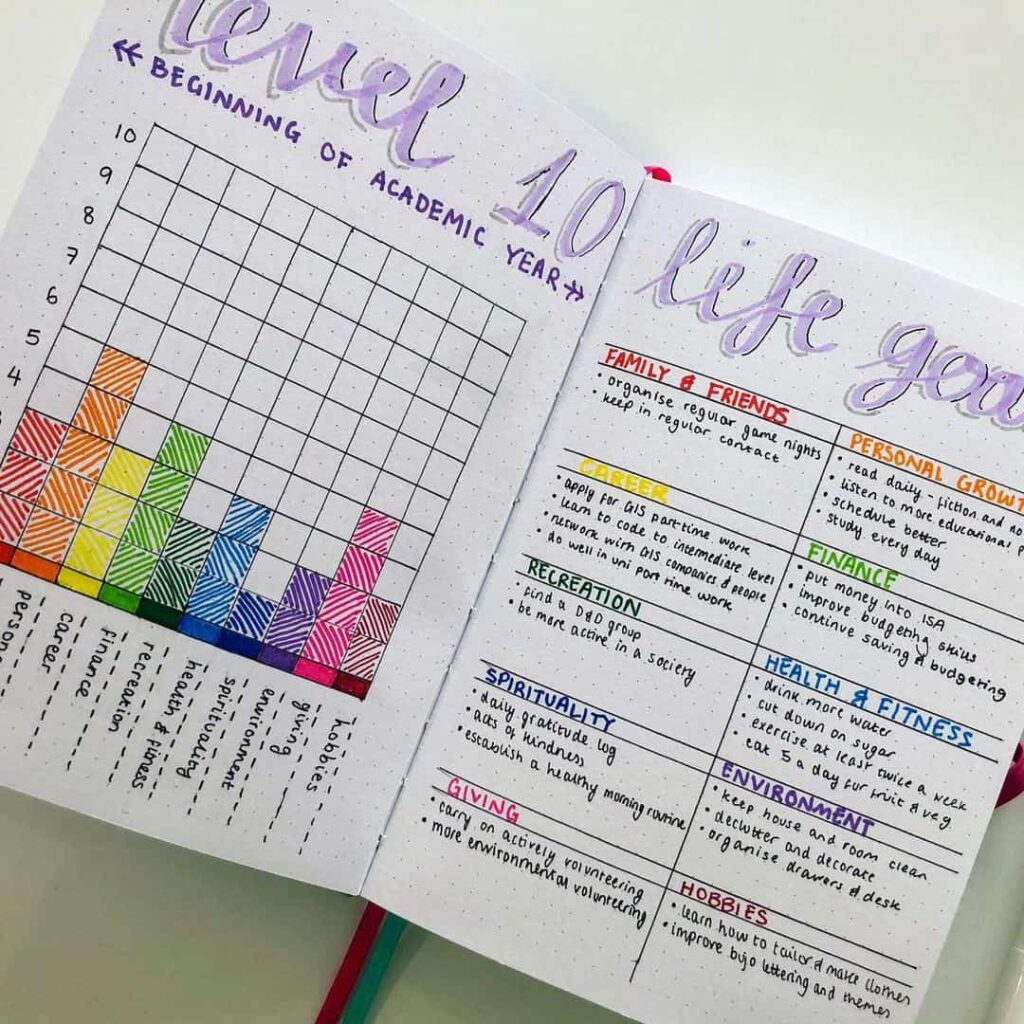 level 10 life goa
« BEGINNING OF ACADEMIC YEAR »
10
9
8
7
6
5
4
career
finance
recreation
health & fitness
spirituality
environment
giving
hobbies
FAMILY & FRIENDS
• organise regular game nights
• keep in regular contact
PERSONAL GROWT
• read daily - fiction and no
• listen to more educational p
• schedule better
• study every day
CAREER
• apply for GIS part time work
• learn to code to intermediate level
• network with GIS companies & people
• do well in uni part time work
FINANCE
• put money into ISA
• improve budgeting skills
• continue saving & budgeting
RECREATION
• find a D&D group
• be more active in a society
HEALTH & FITNESS
• drink more water
• cut down on sugar
• exercise at least twice a week
• eat 5 a day fur fruit & veg
SPIRITUALITY
• daily gratitude log
• acts of kindness
• establish a healthy morning routine
ENVIRONMENT
• keep house and room clean
• declutter and decorate
• organise drawers & desk
GIVING
• carry on actively volunteering
• more environmental volunteering
HOBBIES
• learn how to tailor & make clothes
• improve bujo lettering and themes